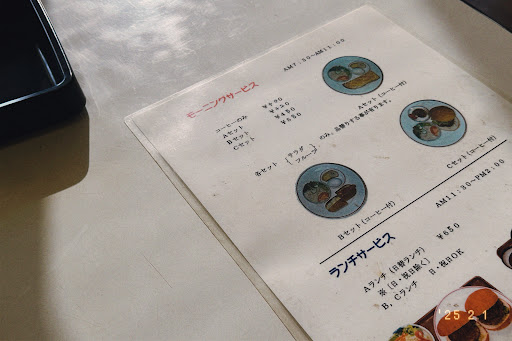 モーニングサービス
AM7:30〜AM11:00
コーヒーのみ
Aセット ¥420
Bセット ¥450
Cセット
各セット（サラダ・フルーツ）のみ、品替りする事が有ります。
Aセット(コーヒー付)
Cセット(コーヒー付)
Bセット(コーヒー付)
ランチサービス
AM11:30〜PM2:00
Aランチ(日替ランチ) ¥650
※(日・祝日除く)
B, Cランチ 日・祝OK
'25 2 1